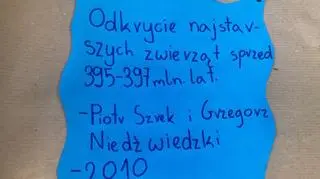 Odkrycie najstar-
szych zwierząt sprzed
395-397 mln. lat.
-Piotr Szrek i Grzegorz
Niedźwiedzki
-2010